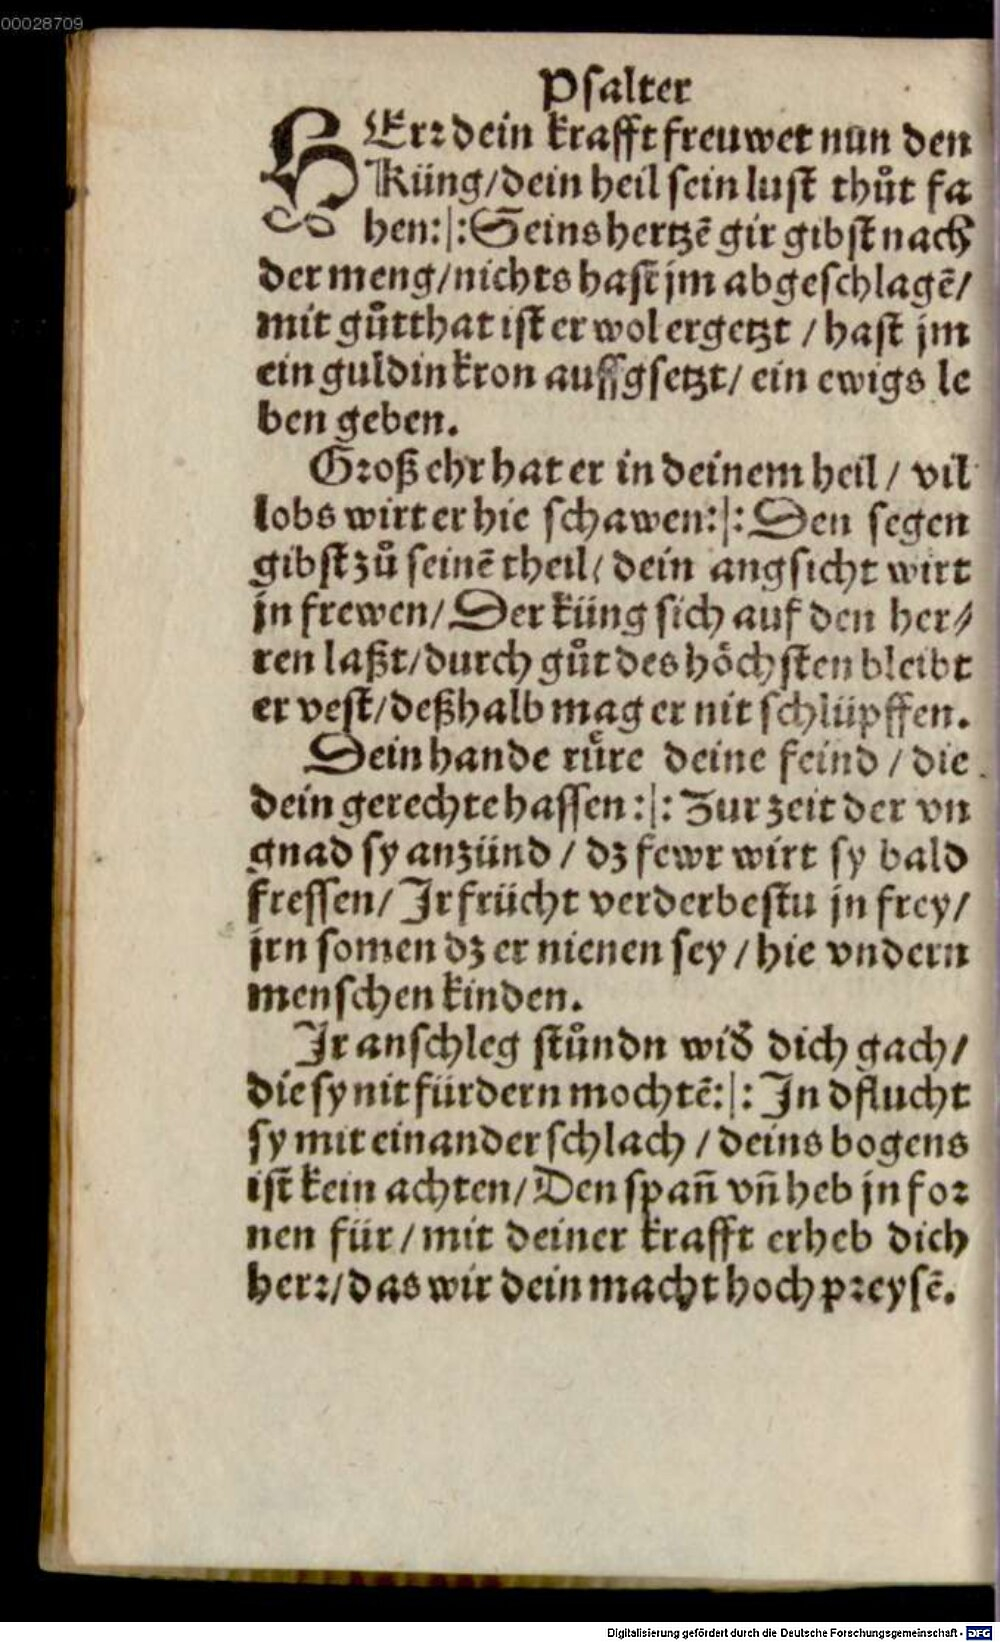 00028709
Psalter
HErr dein krafft freuwet nun den
Küng/dein heil sein lust thůt fa
hen:|:Seins hertzē gir gibst nach
der meng/nichts hast jm abgeschlagē/
mit gůtthat ist er wol ergetzt / hast jm
ein guldin kron auffgsetzt/ ein ewigs le
ben geben.
Groß ehr hat er in deinem heil / vil
lobs wirt er hie schawen:|:Den segen
gibst zů seinē theil/ dein angsicht wirt
jn frewen/ Der küng sich auf den her/
ren laßt/durch gůt des höchsten bleibt
er vest/deßhalb mag er nit schlüpffen.
Dein hande růre deine feind / die
dein gerechte hassen:|: Zur zeit der vn
gnad sy anzünd / dz fewr wirt sy bald
fressen/ Jr frücht verderbestu jn frey/
jrn somen dz er nienen sey / hie vndern
menschen kinden.
Jr anschleg stůndn wid̄ dich gach/
die sy nit fürdern mochtē:|: In dflucht
sy mit einander schlach / deins bogens
ist kein achten/ Den spañ vñ heb jn for
nen für / mit deiner krafft erheb dich
herr/das wir dein macht hoch preysē.
Digitalisierung gefördert durch die Deutsche Forschungsgemeinschaft - DFG